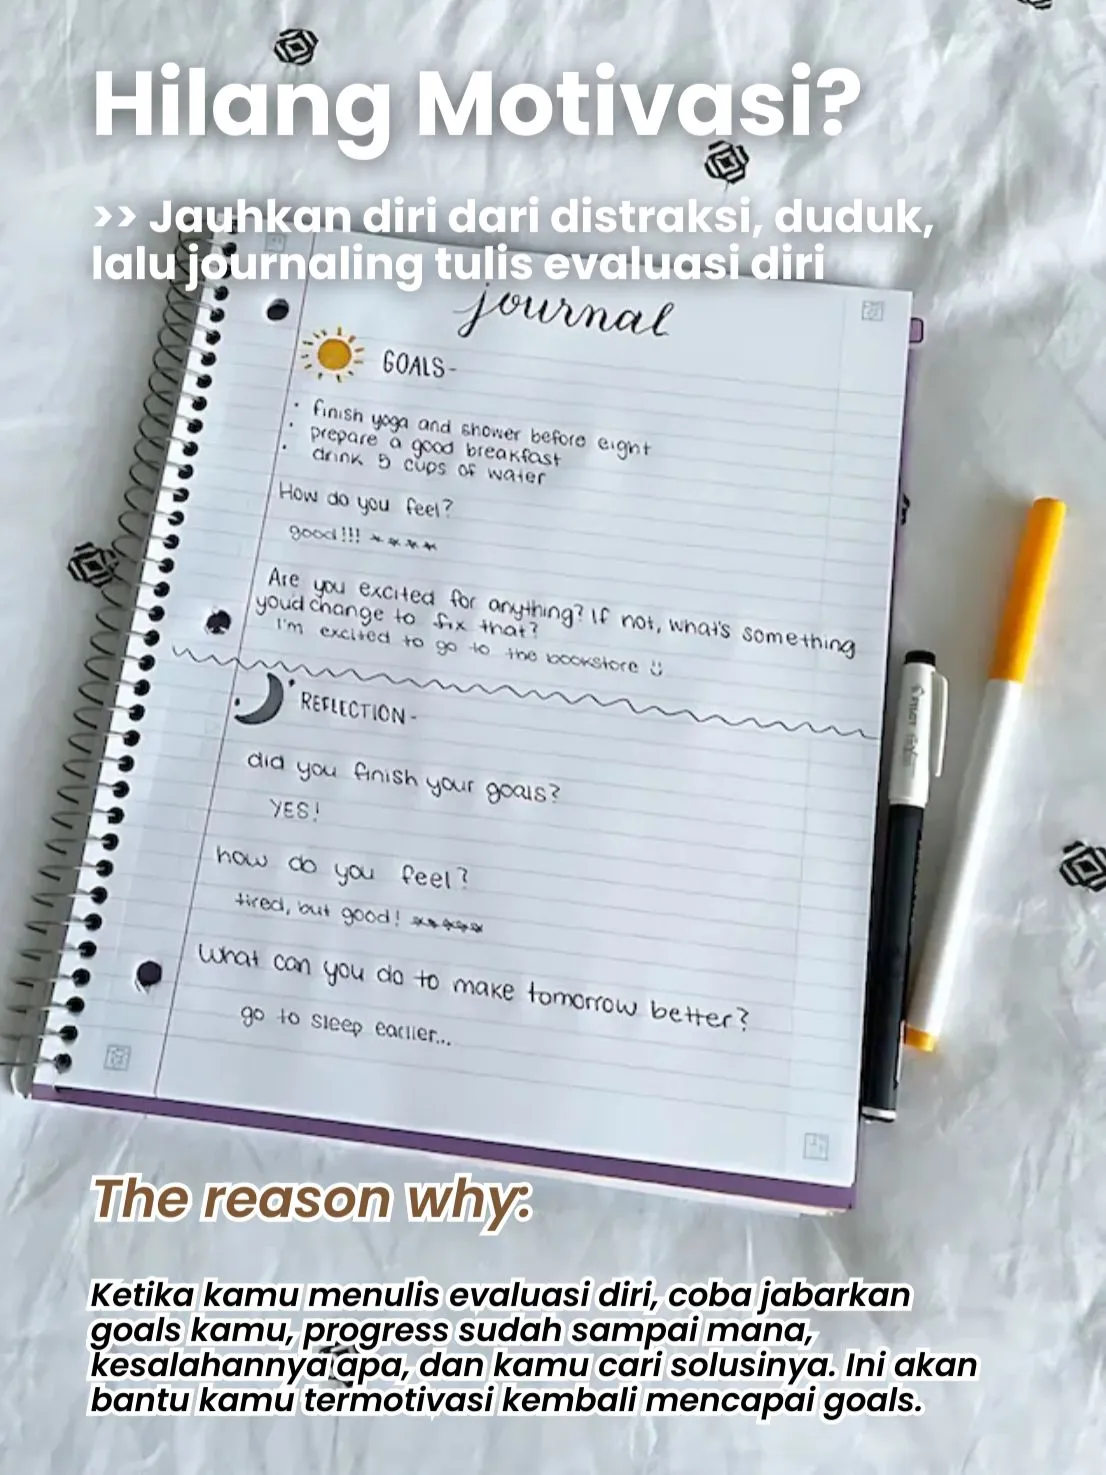 Hilang Motivasi?
>> Jauhkan diri dari distraksi, duduk,
lalu journaling tulis evaluasi diri
journal
GOALS-
· finish yoga and shower before eight
· prepare a good breakfast
· drink 5 cups of water
How do you feel?
good!!! ****
Are you excited for anything? If not, what's something
you'd change to fix that?
I'm excited to go to the bookstore
REFLECTION-
did you finish your goals?
YES!
how do you feel?
tired, but good! *****
What can you do to make tomorrow better?
go to sleep earlier...
The reason why:
Ketika kamu menulis evaluasi diri, coba jabarkan
goals kamu, progress sudah sampai mana,
kesalahannya apa, dan kamu cari solusinya. Ini akan
bantu kamu termotivasi kembali mencapai goals.